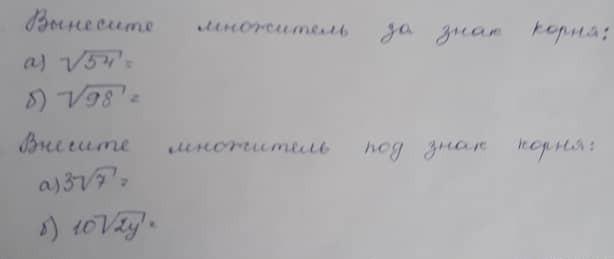 Вынесите множитель за знак корня:
а) √54 =
б) √98 =
Внесите множитель под знак корня:
а) 3√7 =
б) 10√2y =